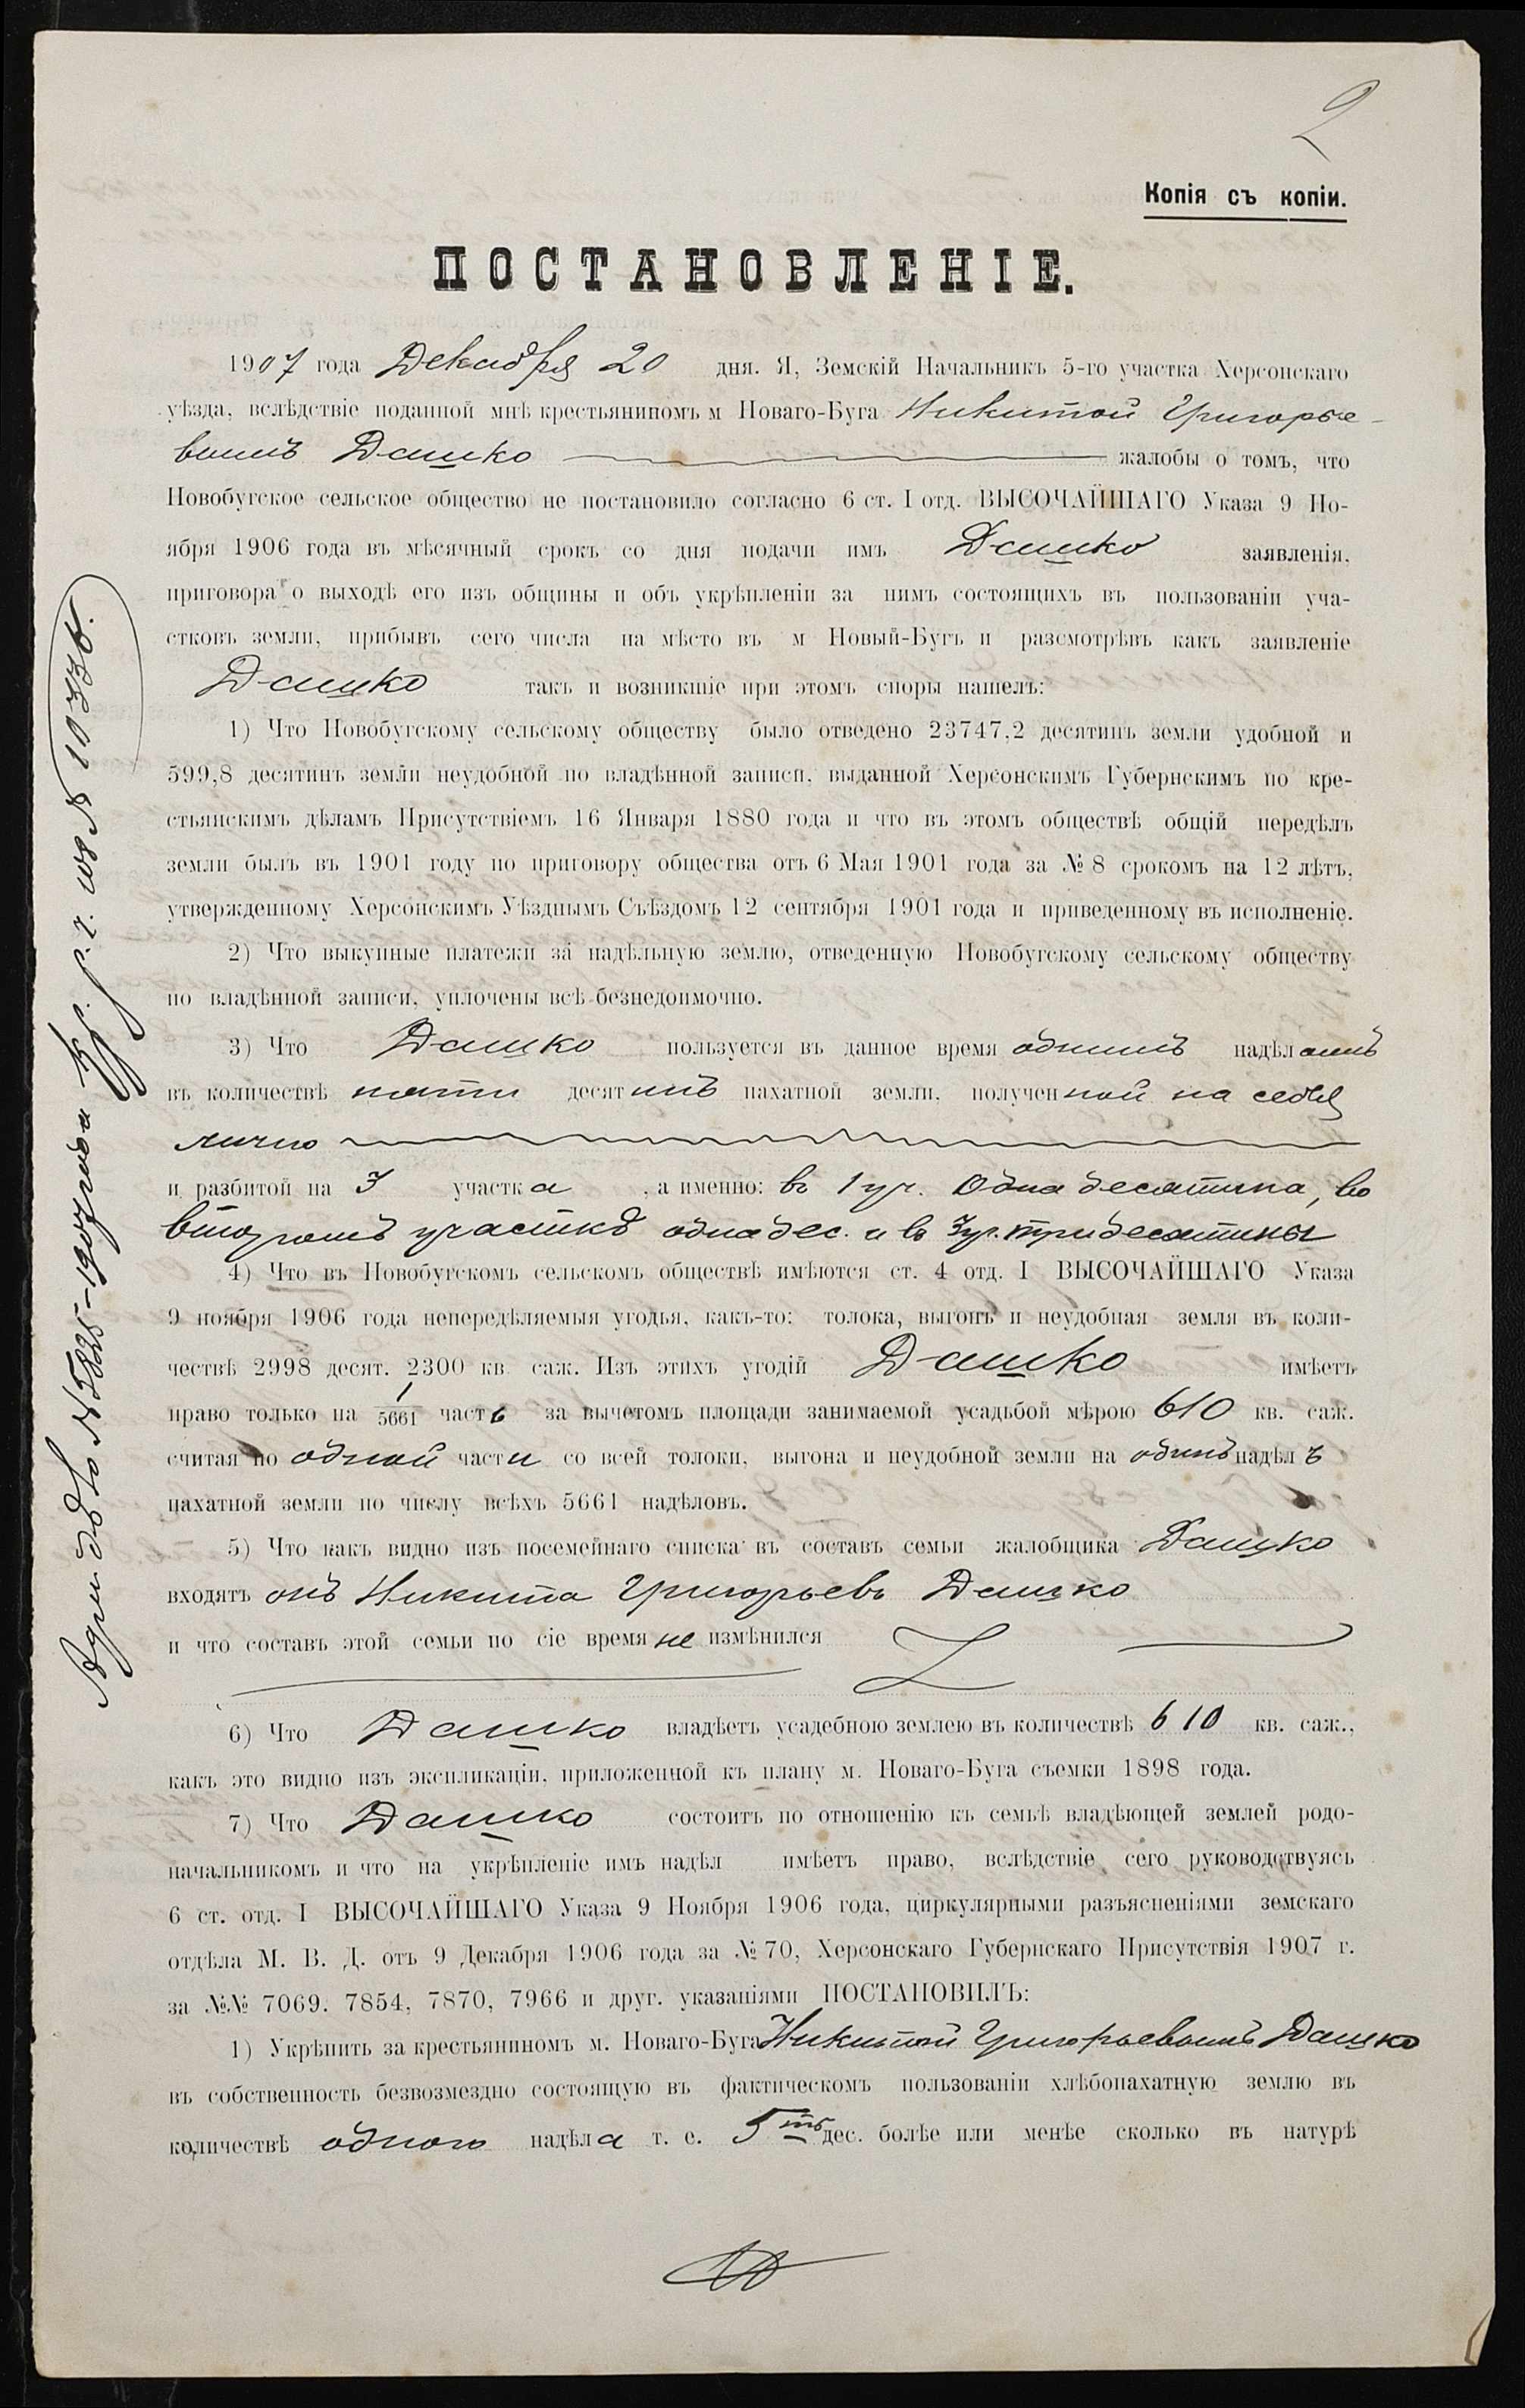 2
Копія съ копіи.
ПОСТАНОВЛЕНІЕ.
1907 года Декабря 20 дня. Я, Земскій Начальникъ 5-го участка Херсонскаго
уѣзда, вслѣдствіе поданной мнѣ крестьяниномъ м Новаго-Буга Никитой Григорье-
вымъ Дашко жалобы о томъ, что
Новобугское сельское общество не постановило согласно 6 ст. I отд. ВЫСОЧАЙШАГО Указа 9 Но-
ября 1906 года въ мѣсячный срокъ со дня подачи имъ Дашко заявленія,
приговора о выходѣ его изъ общины и объ укрѣпленіи за нимъ состоящихъ въ пользованіи уча-
стковъ земли, прибывъ сего числа на мѣсто въ м Новый-Бугъ и разсмотрѣвъ какъ заявленіе
Дашко такъ и возникшіе при этомъ споры нашелъ:
1) Что Новобугскому сельскому обществу было отведено 23747,2 десятинъ земли удобной и
599,8 десятинъ земли неудобной по владѣнной записи, выданной Херсонскимъ Губернскимъ по кре-
стьянскимъ дѣламъ Присутствіемъ 16 Января 1880 года и что въ этомъ обществѣ общій передѣлъ
земли былъ въ 1901 году по приговору общества отъ 6 Мая 1901 года за № 8 срокомъ на 12 лѣтъ,
утвержденному Херсонскимъ Уѣзднымъ Съѣздомъ 12 сентября 1901 года и приведенному въ исполненіе.
2) Что выкупные платежи за надѣльную землю, отведенную Новобугскому сельскому обществу
по владѣнной записи, уплочены всѣ безнедоимочно.
3) Что Дашко пользуется въ данное время однимъ надѣломъ
въ количествѣ пяти десятинъ пахатной земли, полученной на себя
лично
и разбитой на 3 участка, а именно: въ 1 уч. Одна десятина, во
второмъ участкѣ одна дес. и въ 3 уч. три десятины
4) Что въ Новобугскомъ сельскомъ обществѣ имѣются ст. 4 отд. I ВЫСОЧАЙШАГО Указа
9 ноября 1906 года непередѣляемыя угодья, какъ-то: толока, выгонъ и неудобная земля въ коли-
чествѣ 2998 десят. 2300 кв. саж. Изъ этихъ угодій Дашко имѣетъ
право только на 1/5661 часть за вычетомъ площади занимаемой усадьбой мѣрою 610 кв. саж.
считая по одной части со всей толоки, выгона и неудобной земли на одинъ надѣлъ
пахатной земли по числу всѣхъ 5661 надѣловъ.
5) Что какъ видно изъ посемейнаго списка въ составъ семьи жалобщика Дашко
входятъ онъ Никита Григорьевъ Дашко
и что составъ этой семьи по сіе время не измѣнился
6) Что Дашко владѣетъ усадебною землею въ количествѣ 610 кв. саж.,
какъ это видно изъ экспликаціи, приложенной къ плану м. Новаго-Буга съемки 1898 года.
7) Что Дашко состоитъ по отношенію къ семьѣ владѣющей землей родо-
начальникомъ и что на укрѣпленіе имъ надѣл имѣетъ право, вслѣдствіе сего руководствуясь
6 ст. отд. I ВЫСОЧАЙШАГО Указа 9 Ноября 1906 года, циркулярными разъясненіями земскаго
отдѣла М. В. Д. отъ 9 Декабря 1906 года за № 70, Херсонскаго Губернскаго Присутствія 1907 г.
за №№ 7069. 7854, 7870, 7966 и друг. указаніями ПОСТАНОВИЛЪ:
1) Укрѣпить за крестьяниномъ м. Новаго-Буга Никитой Григорьевымъ Дашко
въ собственность безвозмездно состоящую въ фактическомъ пользованіи хлѣбопахатную землю въ
количествѣ одного надѣла т. е. 5ть дес. болѣе или менѣе сколько въ натурѣ
№ 5825-1907 года
№ 10336.